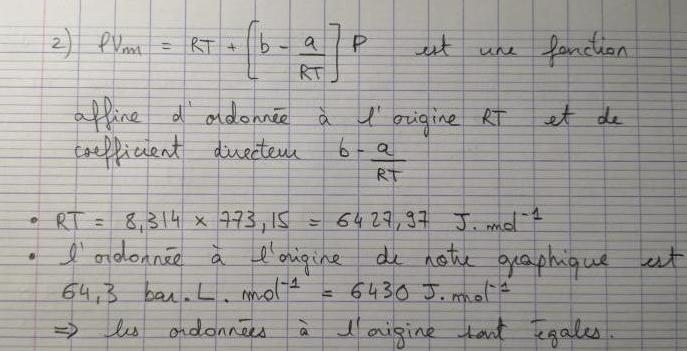 2) PVm = RT + [b - a/RT] P est une fonction
affine d'ordonnée à l'origine RT et de
coefficient directeur b - a/RT
• RT = 8,314 × 773,15 = 6427,97 J.mol⁻¹
• l'ordonnée à l'origine de notre graphique est
64,3 bar.L.mol⁻¹ = 6430 J.mol⁻¹
⇒ les ordonnées à l'origine sont égales.